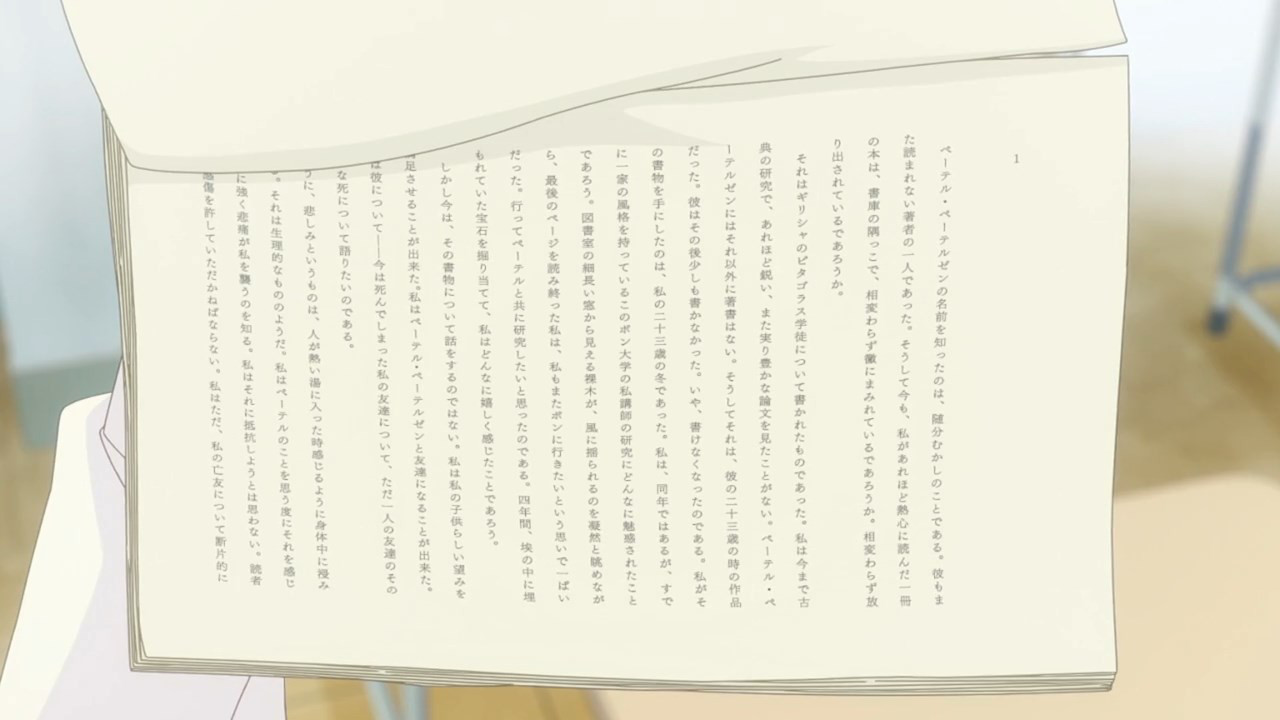 1
ペーテル・ペーテルゼンの名前を知ったのは、随分むかしのことである。彼もま
た読まれない著者の一人であった。そうして今も、私があれほど熱心に読んだ一冊
の本は、書庫の隅っこで、相変わらず黴にまみれているであろうか。相変わらず放
り出されているであろうか。
それはギリシャのピタゴラス学徒について書かれたものであった。私は今まで古
典の研究で、あれほど鋭い、また実り豊かな論文を見たことがない。ペーテル・ペ
ーテルゼンにはそれ以外に著書はない。そうしてそれは、彼の二十三歳の時の作品
だった。彼はその後少しも書かなかった。いや、書けなくなったのである。私がそ
の書物を手にしたのは、私の二十三歳の冬であった。私は、同年ではあるが、すで
に一家の風格を持っているこのボン大学の私講師の研究にどんなに魅惑されたこと
であろう。図書室の細長い窓から見える裸木が、風に揺られるのを凝然と眺めなが
ら、最後のページを読み終った私は、私もまたボンに行きたいという思いで一ぱい
だった。行ってペーテルと共に研究したいと思ったのである。四年間、埃の中に埋
もれていた宝石を掘り当てて、私はどんなに嬉しく感じたことであろう。
しかし今は、その書物について話をするのではない。私は私の子供らしい望みを
足させることが出来た。私はペーテル・ペーテルゼンと友達になることが出来た。
は彼について――今は死んでしまった私の友達について、ただ一人の友達のその
な死について語りたいのである。
うに、悲しみというものは、人が熱い湯に入った時感じるように身体中に浸み
。それは生理的なもののようだ。私はペーテルのことを思う度にそれを感じ
に強く悲痛が私を襲うのを知る。私はそれに抵抗しようとは思わない。読者
感傷を許していただかねばならない。私はただ、私の亡友について断片的に